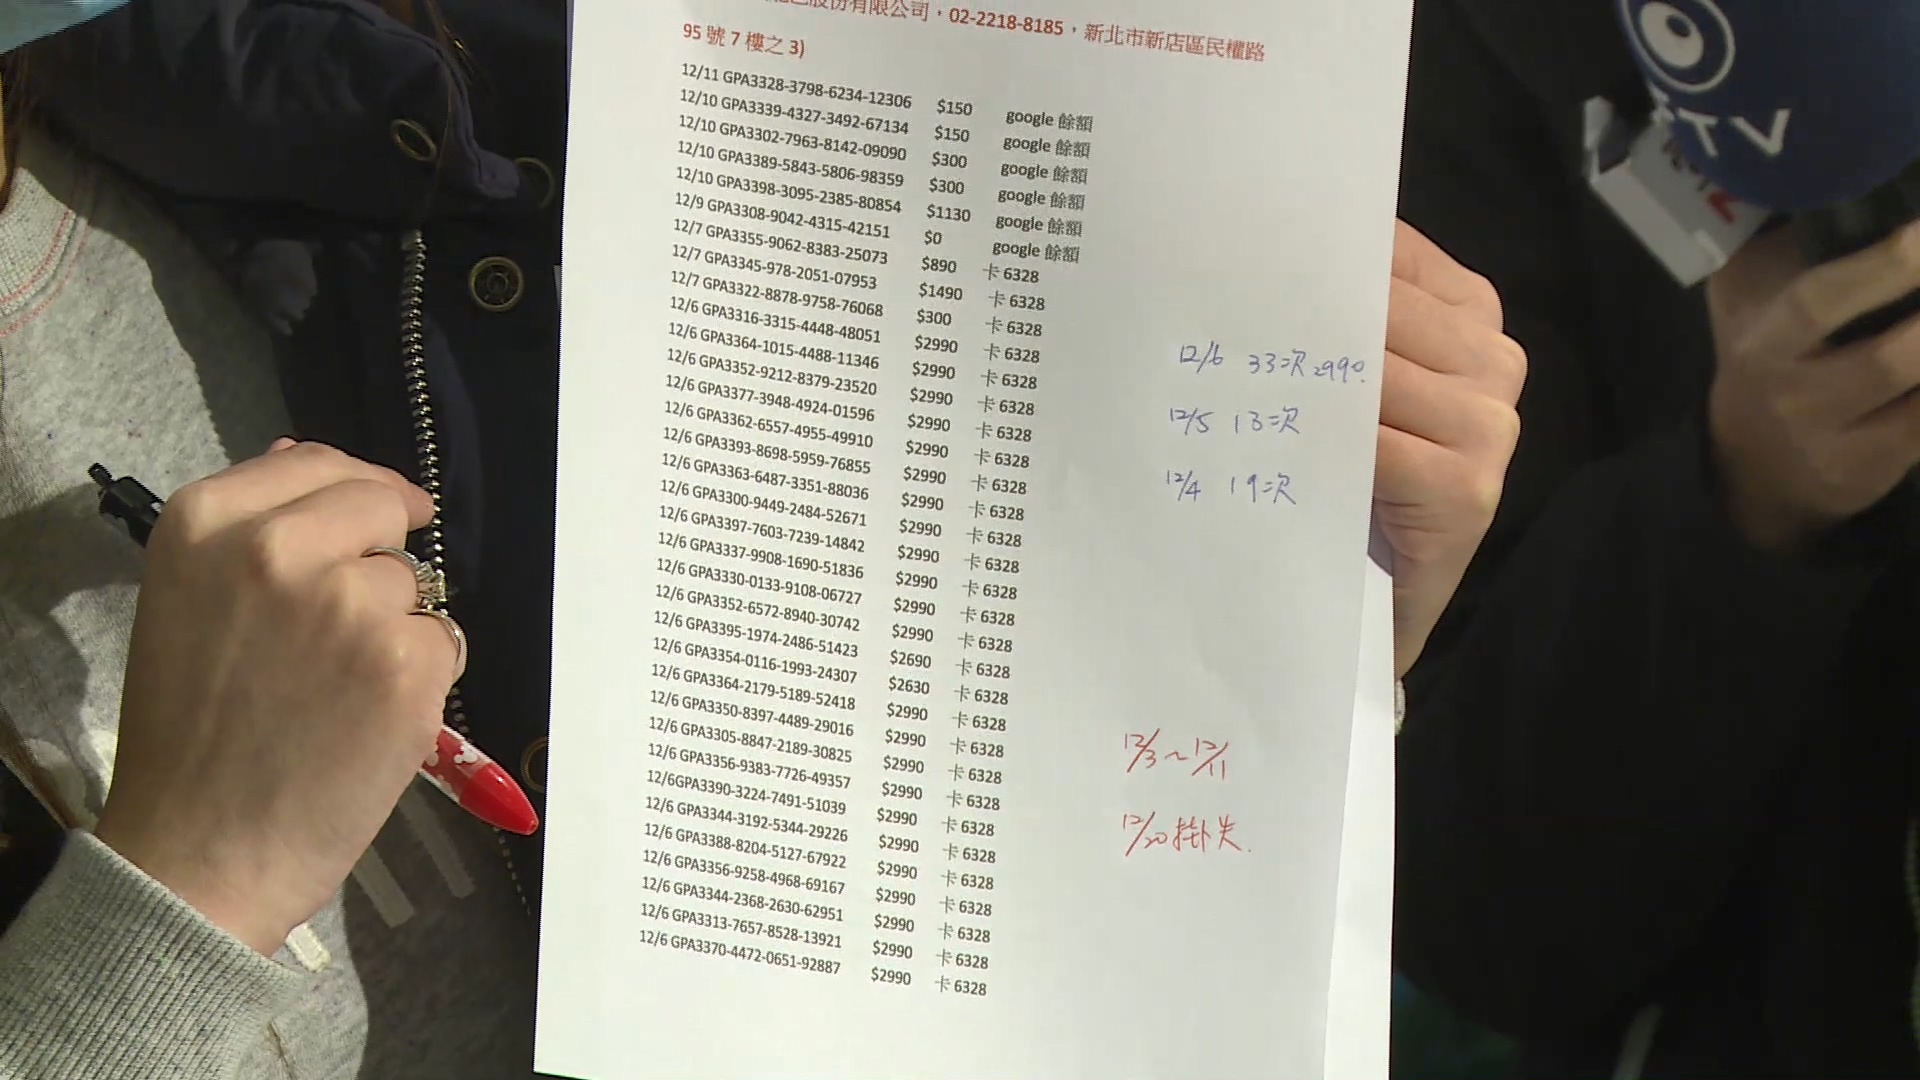 股份有限公司，02-2218-8185，新北市新店區民權路
95 號 7 樓之 3)
12/11 GPA3328-3798-6234-12306 $150 google 餘額
12/10 GPA3339-4327-3492-67134 $150 google 餘額
12/10 GPA3302-7963-8142-09090 $300 google 餘額
12/10 GPA3389-5843-5806-98359 $300 google 餘額
12/10 GPA3398-3095-2385-80854 $1130 google 餘額
12/9 GPA3308-9042-4315-42151 $0 google 餘額
12/7 GPA3355-9062-8383-25073 $890 卡 6328
12/7 GPA3345-978-2051-07953 $1490 卡 6328
12/7 GPA3322-8878-9758-76068 $300 卡 6328
12/6 GPA3316-3315-4448-48051 $2990 卡 6328
12/6 GPA3364-1015-4488-11346 $2990 卡 6328
12/6 GPA3352-9212-8379-23520 $2990 卡 6328
12/6 GPA3377-3948-4924-01596 $2990 卡 6328
12/6 GPA3362-6557-4955-49910 $2990 卡 6328
12/6 GPA3393-8698-5959-76855 $2990 卡 6328
12/6 GPA3363-6487-3351-88036 $2990 卡 6328
12/6 GPA3300-9449-2484-52671 $2990 卡 6328
12/6 GPA3397-7603-7239-14842 $2990 卡 6328
12/6 GPA3337-9908-1690-51836 $2990 卡 6328
12/6 GPA3330-0133-9108-06727 $2990 卡 6328
12/6 GPA3352-6572-8940-30742 $2990 卡 6328
12/6 GPA3395-1974-2486-51423 $2690 卡 6328
12/6 GPA3354-0116-1993-24307 $2630 卡 6328
12/6 GPA3364-2179-5189-52418 $2990 卡 6328
12/6 GPA3350-8397-4489-29016 $2990 卡 6328
12/6 GPA3305-8847-2189-30825 $2990 卡 6328
12/6 GPA3356-9383-7726-49357 $2990 卡 6328
12/6GPA3390-3224-7491-51039 $2990 卡 6328
12/6 GPA3344-3192-5344-29226 $2990 卡 6328
12/6 GPA3388-8204-5127-67922 $2990 卡 6328
12/6 GPA3356-9258-4968-69167 $2990 卡 6328
12/6 GPA3344-2368-2630-62951 $2990 卡 6328
12/6 GPA3313-7657-8528-13921 $2990 卡 6328
12/6 GPA3370-4472-0651-92887 $2990 卡 6328
12/6 33次 2990.
12/5 13次
12/4 19次
12/3～12/11
12/20掛失.
TTV